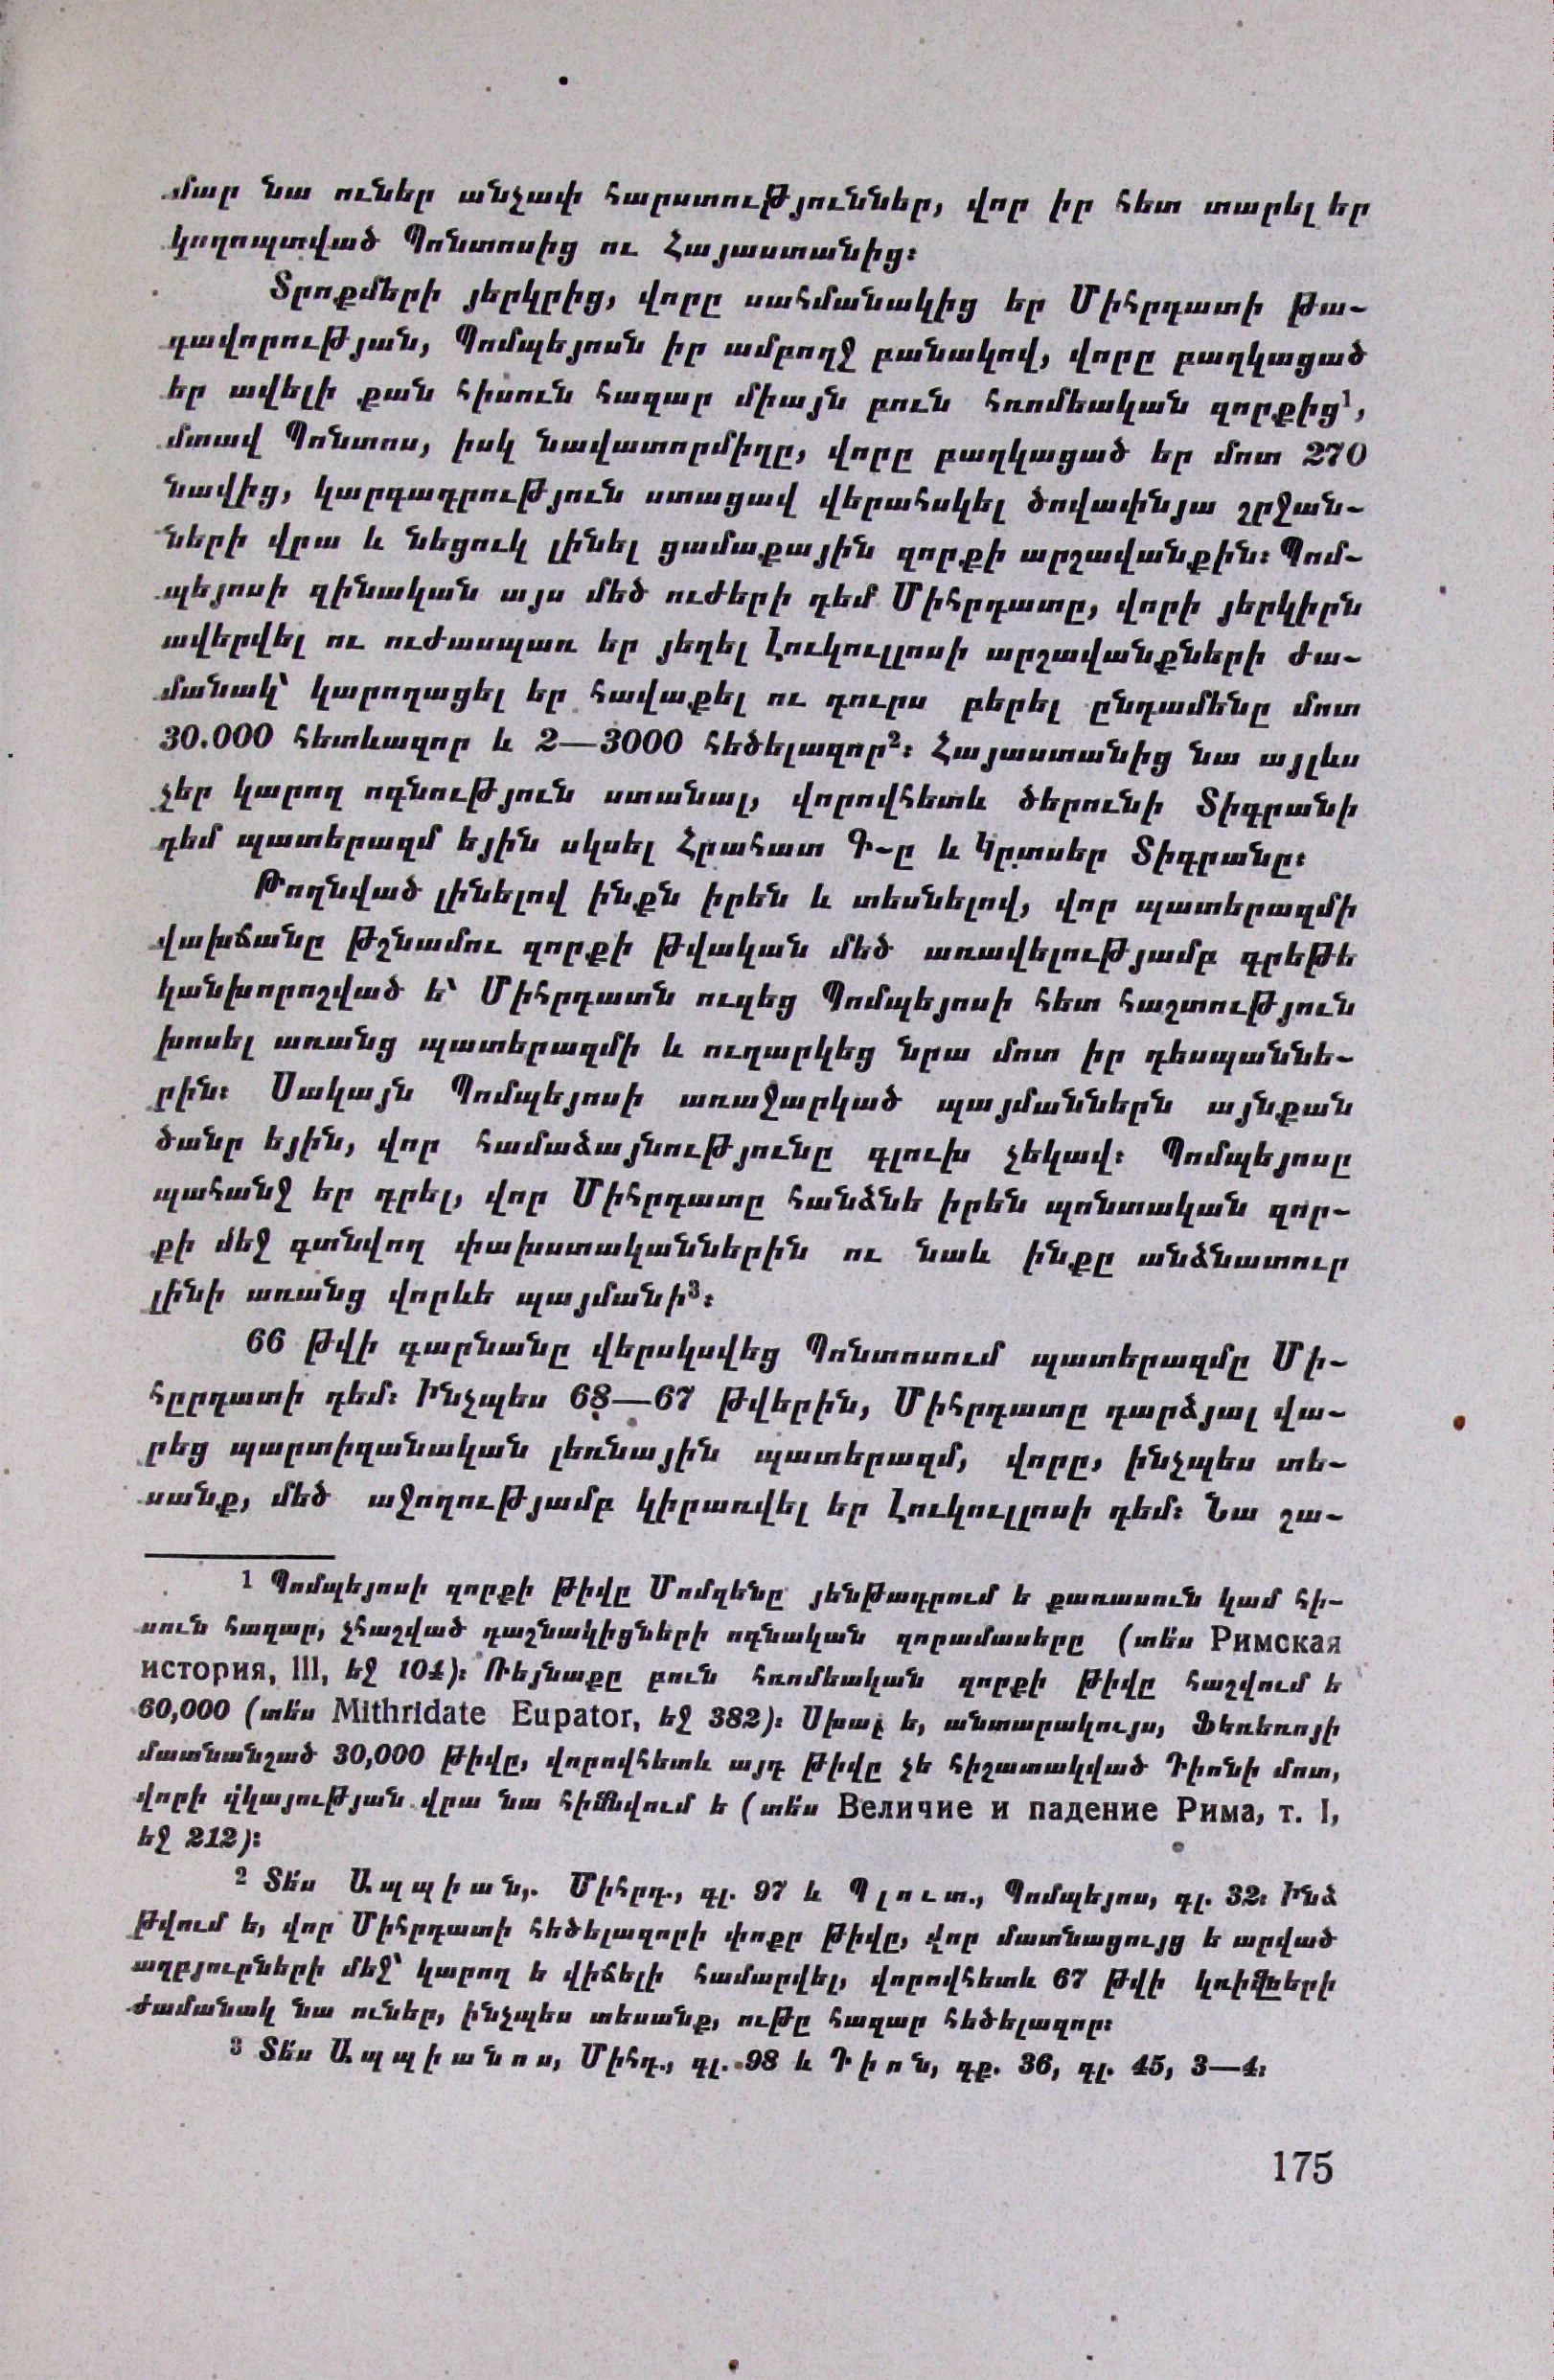 մար նա ուներ անչափ հարստություններ, վոր իր հետ տարել եր
կողոպտված Պոնտոսից ու Հայաստանից։
Տրոքմերի յերկրից, վորը սահմանակից եր Միհրդատի թա-
գավորության, Պոմպեյոսն իր ամբողջ բանակով, վորը բաղկացած
եր ավելի քան հիսուն հազար միայն բուն հռոմեական զորքից¹,
մտավ Պոնտոս, իսկ նավատորմիղը, վորը բաղկացած եր մոտ 270
նավից, կարգադրություն ստացավ վերահսկել ծովափնյա շրջան-
ների վրա և նեցուկ լինել ցամաքային զորքի արշավանքին։ Պոմ-
պեյոսի զինական այս մեծ ուժերի դեմ Միհրդատը, վորի յերկիրն
ավերվել ու ուժասպառ եր յեղել Լուկուլլոսի արշավանքների ժա-
մանակ՝ կարողացել եր հավաքել ու դուրս բերել ընդամենը մոտ
30.000 հետևազոր և 2—3000 հեծելազոր²։ Հայաստանից նա այլևս
չեր կարող ոգնություն ստանալ, վորովհետև ծերունի Տիգրանի
դեմ պատերազմ եյին սկսել Հրահատ Գ-ը և Կրտսեր Տիգրանը։
Թողնված լինելով ինքն իրեն և տեսնելով, վոր պատերազմի
վախճանը թշնամու զորքի թվական մեծ առավելությամբ գրեթե
կանխորոշված ե՝ Միհրդատն ուզեց Պոմպեյոսի հետ հաշտություն
խոսել առանց պատերազմի և ուղարկեց նրա մոտ իր դեսպաննե-
րին։ Սակայն Պոմպեյոսի առաջարկած պայմաններն այնքան
ծանր եյին, վոր համաձայնությունը գլուխ չեկավ։ Պոմպեյոսը
պահանջ եր դրել, վոր Միհրդատը հանձնե իրեն պոնտական զոր-
քի մեջ գտնվող փախստականներին ու նաև ինքը անձնատուր
լինի առանց վորևե պայմանի³։
66 թվի գարնանը վերսկսվեց Պոնտոսում պատերազմը Մի-
հըրդատի դեմ։ Ինչպես 68—67 թվերին, Միհրդատը դարձյալ վա-
րեց պարտիզանական լեռնային պատերազմ, վորը, ինչպես տե-
սանք, մեծ աջողությամբ կիրառվել եր Լուկուլլոսի դեմ։ Նա շա-
1 Պոմպեյոսի զորքի թիվը Մոմզենը յենթադրում ե քառասուն կամ հի-
սուն հազար, չհաշված դաշնակիցների ոգնական զորամասերը (տե՛ս Римская
история, III, եջ 104)։ Ռեյնաքը բուն հռոմեական զորքի թիվը հաշվում ե
60,000 (տե՛ս Mithridate Eupator, եջ 382)։ Սխալ ե, անտարակույս, Ֆեռեռոյի
մատնանշած 30,000 թիվը, վորովհետև այդ թիվը չե հիշատակված Դիոնի մոտ,
վորի վկայության վրա նա հիմնվում ե (տե՛ս Величие и падение Рима, т. I,
եջ 212)։
2 Տե՛ս Ապպիան,. Միհրդ., գլ. 97 և Պլուտ., Պոմպեյոս, գլ. 32։ Ինձ
թվում ե, վոր Միհրդատի հեծելազորի փոքր թիվը, վոր մատնացույց ե արված
աղբյուրների մեջ՝ կարող ե վիճելի համարվել, վորովհետև 67 թվի կռիվների
ժամանակ նա ուներ, ինչպես տեսանք, ութը հազար հեծելազոր։
3 Տե՛ս Ապպիանոս, Միհդ., գլ. 98 և Դիոն, գք. 36, գլ. 45, 3—4։
175